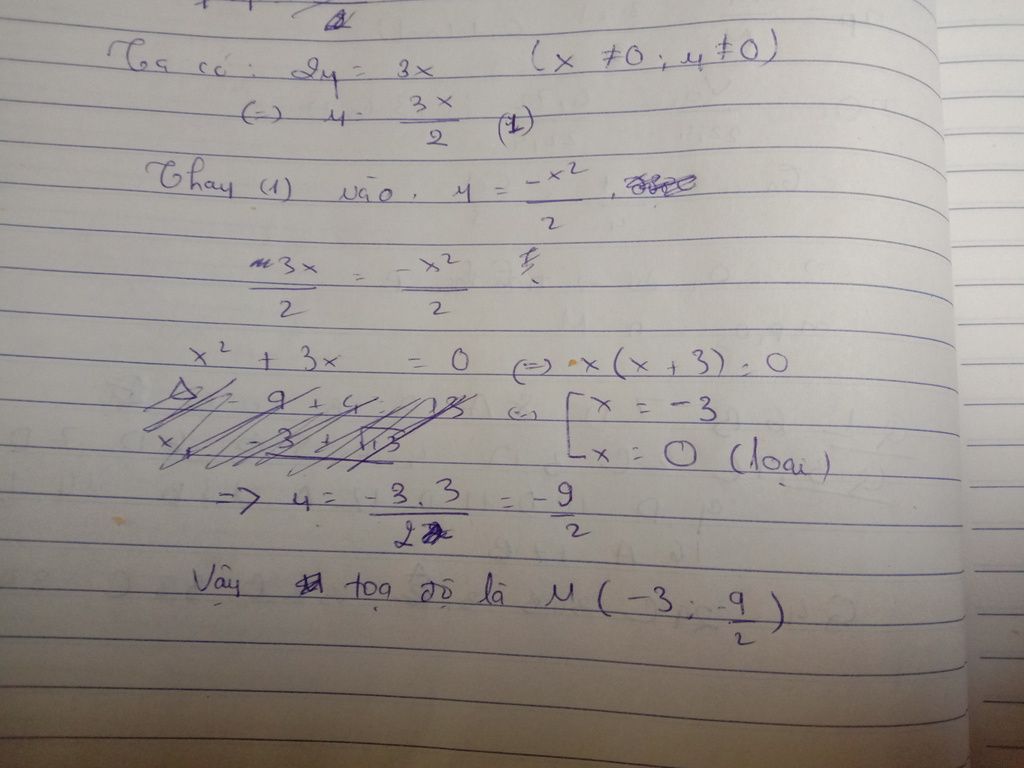 2
Ta có : 2y = 3x (x ≠0 ; y ≠0)
(=) y = 3x/2 (1)
Thay (1) vào . y = -x²/2 .
3x/2 = -x²/2
x² + 3x = 0 (=) x(x + 3) = 0
(=) [ x = -3
x = 0 (loại)
=> y = -3.3/2 = -9/2
Vậy toạ độ là M (-3 ; -9/2)